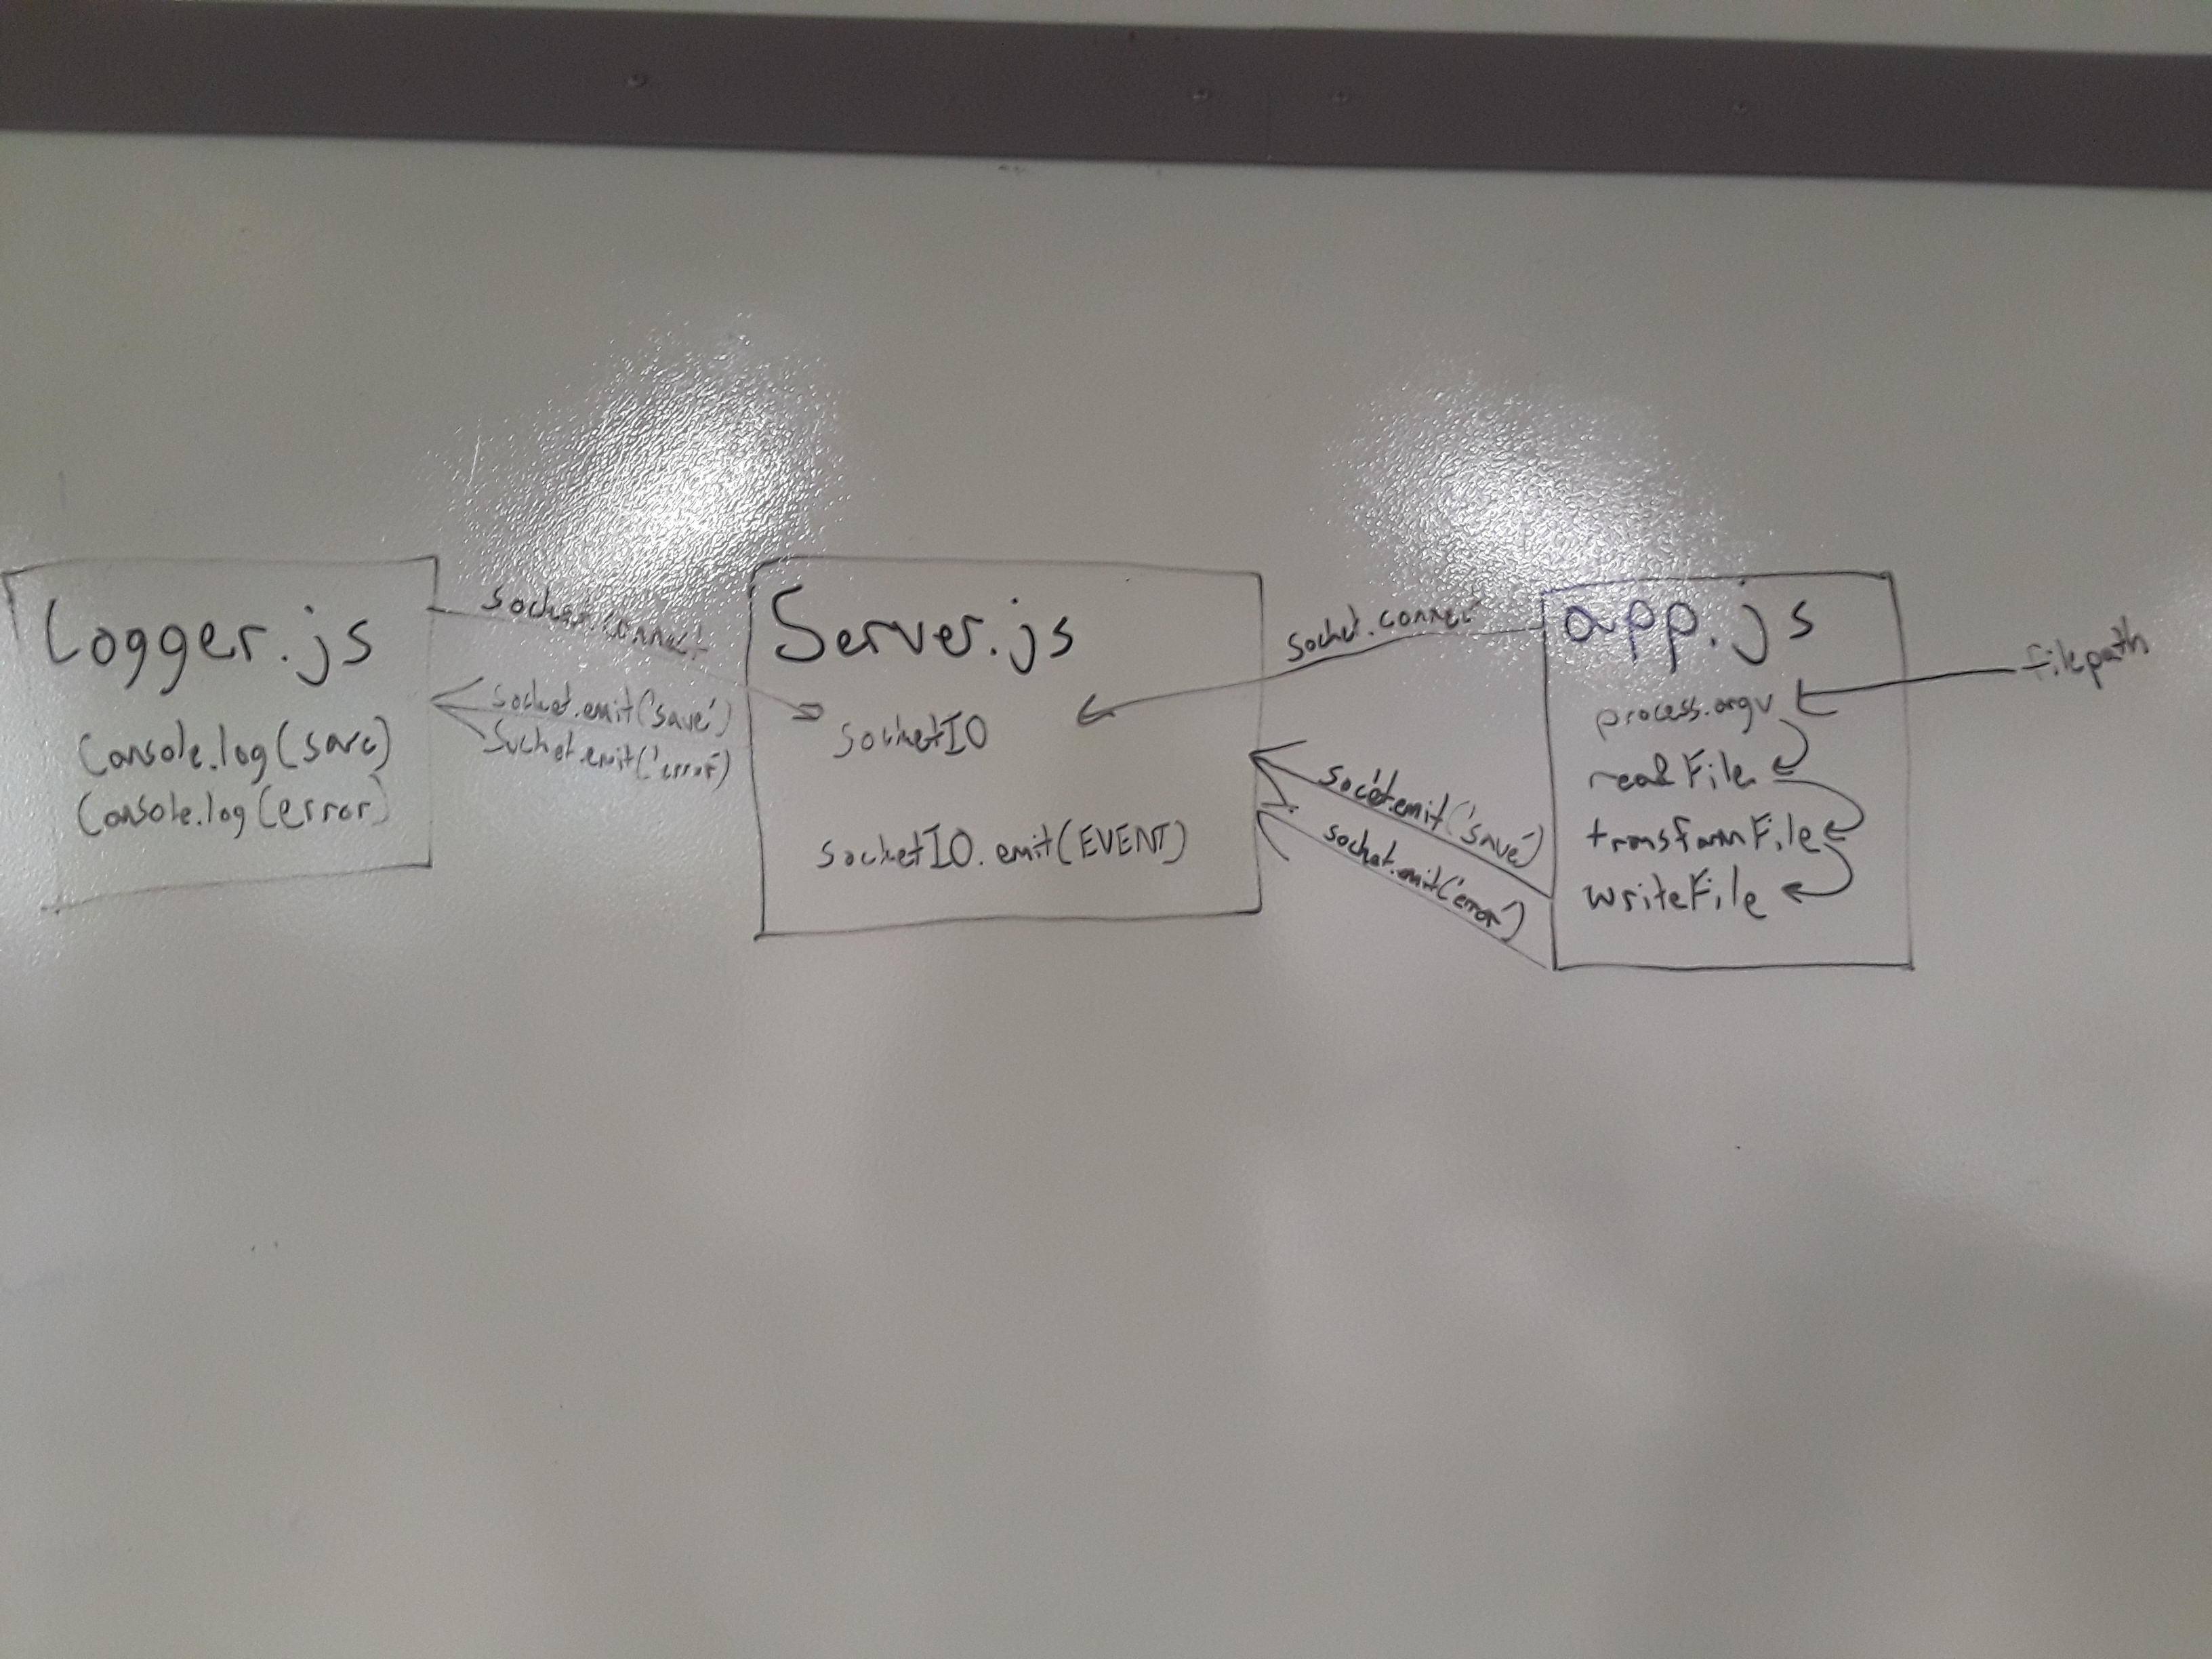 Logger.js
Console.log(save)
Console.log(error)
socket.connect
socket.emit('save')
Socket.emit('error')
Server.js
SocketIO
socketIO.emit(EVENT)
socket.connec
socket.emit('save')
socket.emit('error')
app.js
process.argv
readFile
transformFile
writeFile
filepath